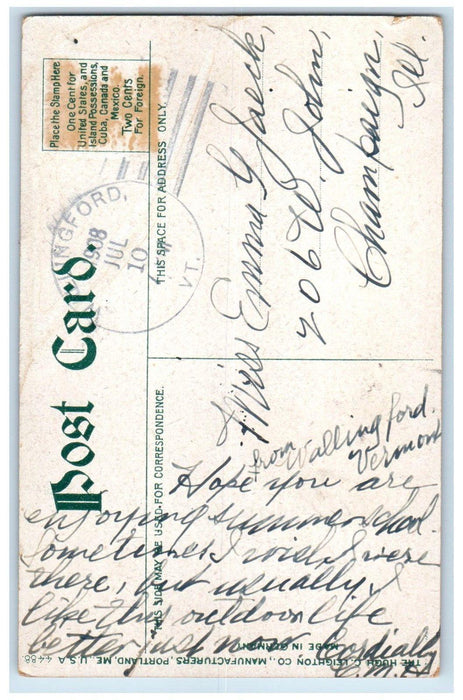 Place the Stamp Here
One Cent for
United States, and
Island Possessions,
Cuba, Canada and
Mexico.
Two Cents
For Foreign.
INGFORD,
1908
JUL
10
VT.
Post Card.
THIS SPACE FOR ADDRESS ONLY.
Miss Emma G Jaeck,
206 W. John,
Champaign,
Ill.
THIS SIDE MAY BE USED FOR CORRESPONDENCE.
from Wallingford.
Vermont
Hope you are
enjoying summer school.
Sometimes I wish I were
there, but usually I
like this outdoor life
better just now. Cordially
E.M.H
THE HUGH C. LEIGHTON CO., MANUFACTURERS, PORTLAND, ME., U.S.A.
MADE IN GERMANY
4488